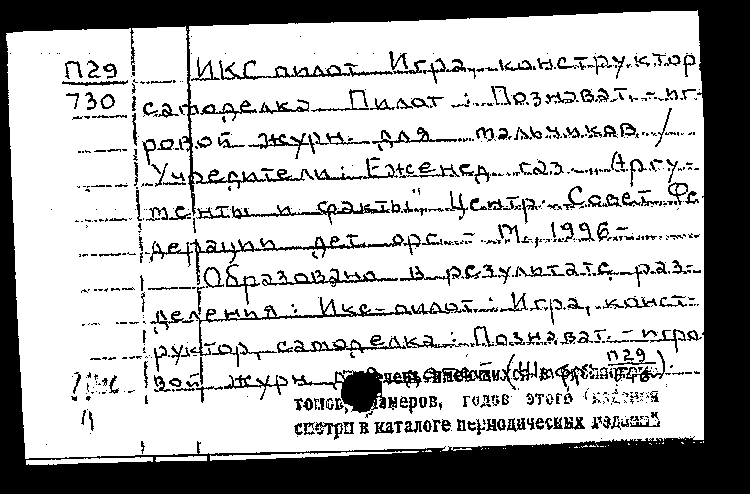 П29
730
ИКС пилот Игра, конструктор,
самоделка Пилот : Познават. - иг-
ровой журн. для мальчиков /
Учредители : Еженед. газ. „Аргу-
менты и факты", Центр. Совет Фе
дерации дет. орг. - М., 1996-
Образовано в результате раз-
деления : Икс-пилот : Игра, конст-
руктор, самоделка : Познават. - игро
вой журн П29
томов, номеров, годов этого издания
смотри в каталоге периодических изданий